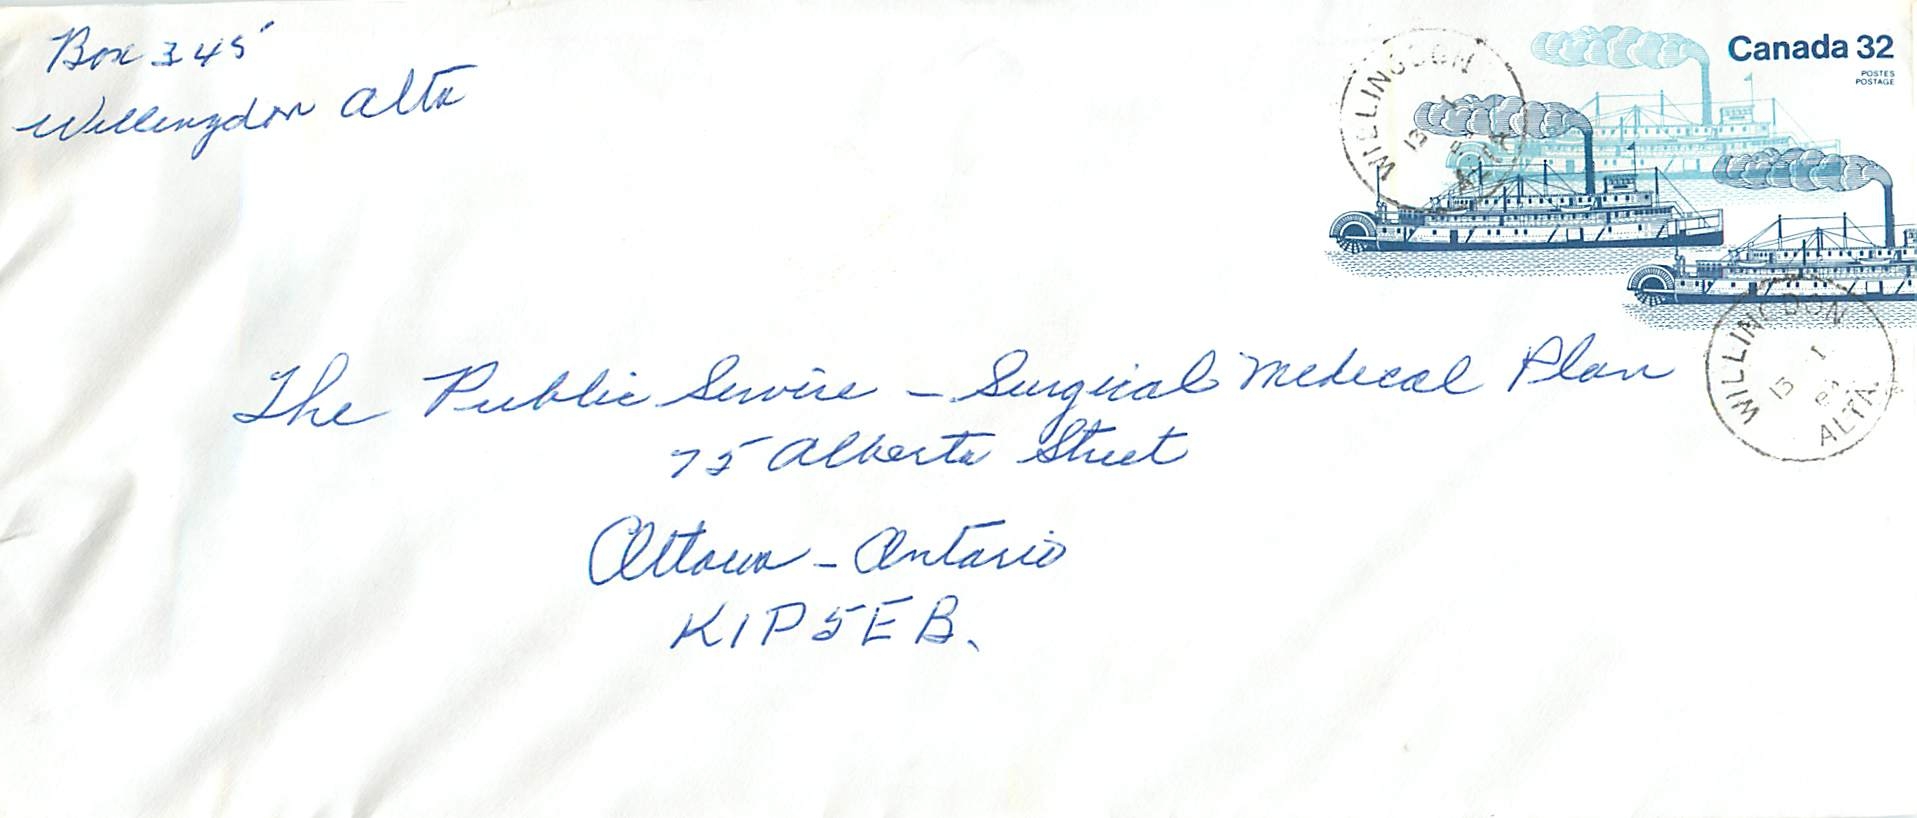 Box 345
Willingdon Alta
Canada 32
POSTES
POSTAGE
WILLINGDON
13
ALTA
The Public Service - Surgical Medical Plan
75 Alberta Street
Ottawa - Ontario
K1P5EB.
WILLINGDON
13 I
ALTA.